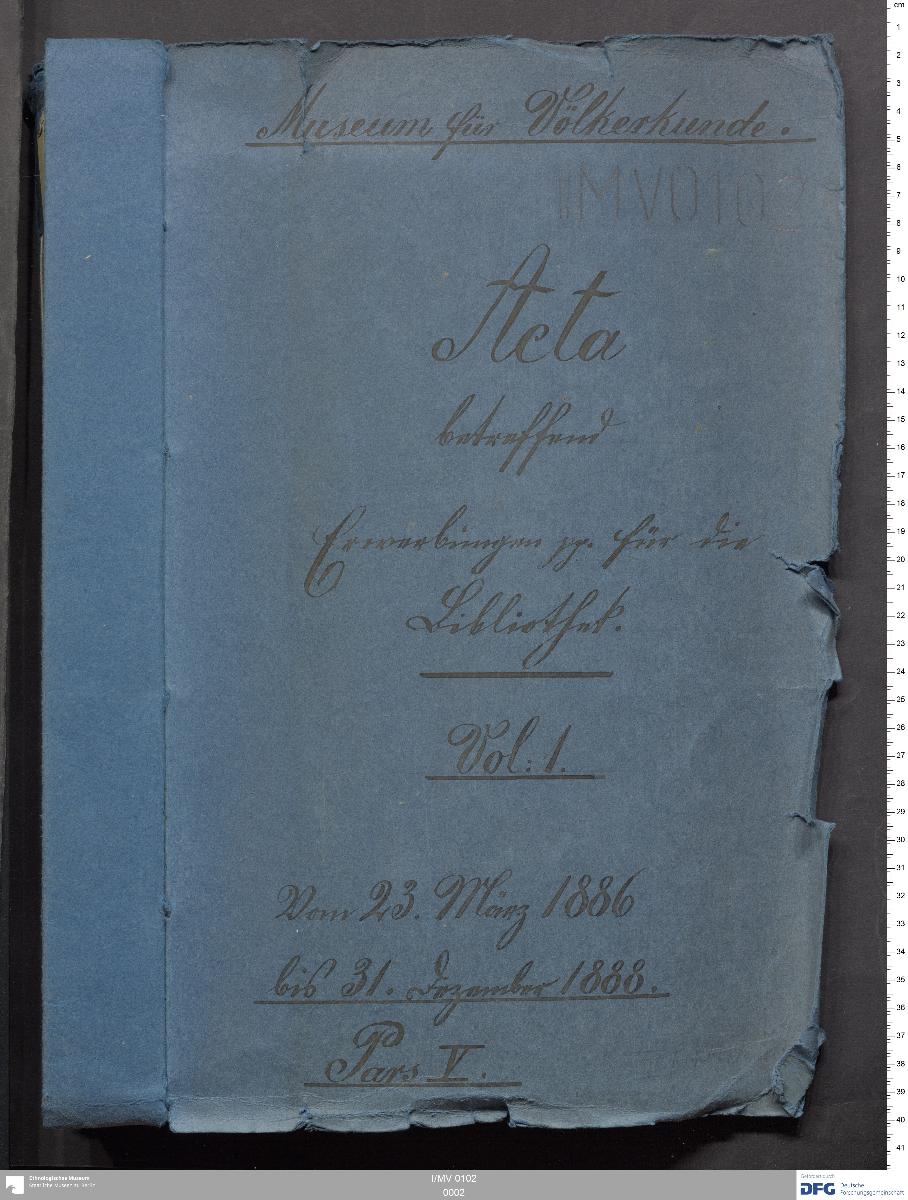 Museum für Völkerkunde.
I/MV 0102
Acta
betreffend
Erwerbungen pp. für die
Bibliothek.
Vol: 1.
Vom 23. März 1886
bis 31. Dezember 1888.
Pars V.
cm
1
2
3
4
5
6
7
8
9
10
11
12
13
14
15
16
17
18
19
20
21
22
23
24
25
26
27
28
29
30
31
32
33
34
35
36
37
38
39
40
41
Ethnologisches Museum
Staatliche Museen zu Berlin
I/MV 0102
0002
Gefördert durch
DFG Deutsche
Forschungsgemeinschaft